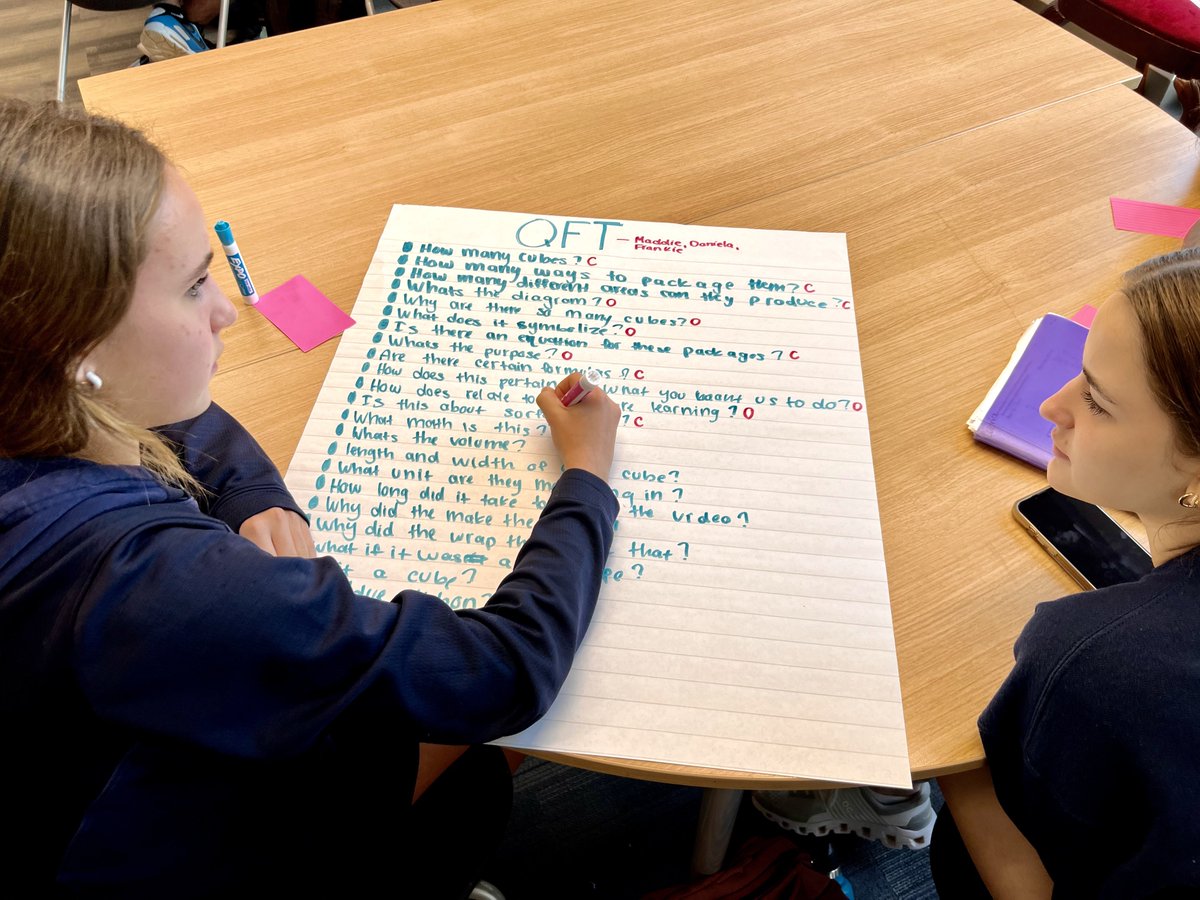 QFT - Maddie, Daniela,
Frankie
How many cubes? C
How many ways to package them? C
How many different areas can they produce? C
Whats the diagram? O
Why are there so many cubes? O
What does it symbolize? O
Is there an equation for these packages? C
Whats the purpose? O
Are there certain formulas? C
How does this pertain what you want us to do? O
How does relate to re learning? O
Is this about ? C
What math is this?
Whats the volume?
length and width of cube?
What unit are they in?
How long did it take to the video?
Why did the make the
Why did the wrap that?
what if it was a
a cube?
EXPO